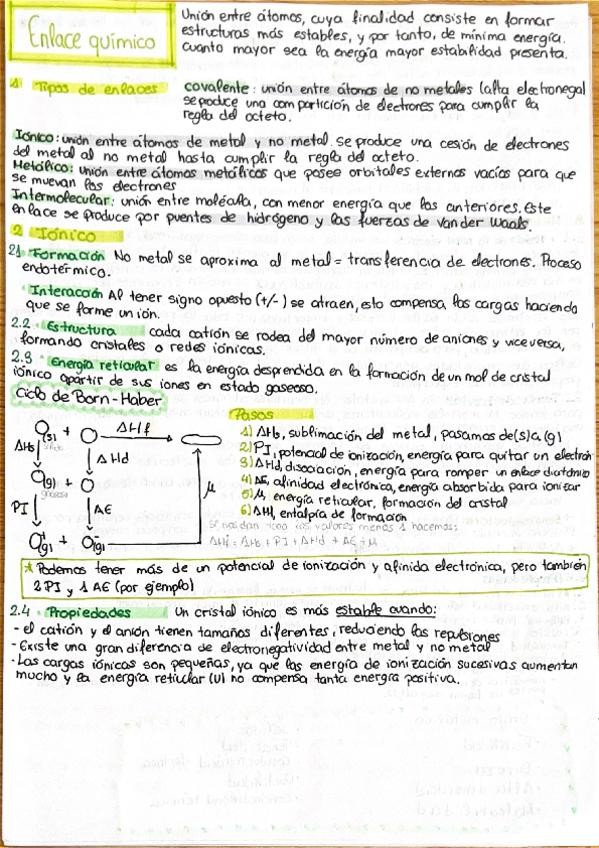 Enlace químico
Unión entre átomos, cuya finalidad consiste en formar
estructuras más estables, y por tanto, de mínima energía.
Cuanto mayor sea la energía mayor estabilidad presenta.
1. Tipos de enlaces
covalente: unión entre átomos de no metales (alta electronegal
se produce una compartición de electrores para cumplir la
regla del octeto.
Iónico: unión entre átomos de metal y no metal. Se produce una cesión de electrones
del metal al no metal hasta cumplir la regla del octeto.
Metálico: unión entre átomos metálicos que posee orbitales externos vacíos para que
se muevan los electrones
Intermolecular: unión entre molécula, con menor energía que las anteriores. Este
enlace se produce por puentes de hidrógeno y las fuerzas de van der Waals.
2 Iónico
2.1 Formación No metal se aproxima al metal = transferencia de electrones. Proceso
endotérmico.
Interacción Al tener signo opuesto (+/-) se atraen, esto compensa las cargas haciendo
que se forme un ión.
2.2 Estructura cada catión se rodea del mayor número de aniones y viceversa,
formando cristales o redes iónicas.
2.3 Energía reticular es la energía desprendida en la formación de un mol de cristal
iónico apartir de sus iones en estado gaseoso.
Ciclo de Born-Haber
(s) + ΔHf
ΔHs ΔHd
(g) +
PI AE
μ
(g) + (g)
Pasos
1) ΔHs, sublimación del metal, pasamos de (s) a (g)
2) PI, potencial de ionización, energía para quitar un electrón
3) ΔHd, disociación, energía para romper un enlace diatómio
4) AE, afinidad electrónica, energía absorbida para ionizar
5) μ, energía reticular, formación del cristal
6) ΔHf, entalpía de formación
Si nos dan todo los valores menos 1 hacemos:
ΔHf = ΔHs + PI + ΔHd + AE + μ
* Podemos tener más de un potencial de ionización y afinida electronica, pero también
2 PI y 1 AE (por ejemplo)
2.4 Propiedades Un cristal iónico es más estable cuando:
- el catión y el anión tienen tamaños diferentes, reduciendo las repulsiones
- Existe una gran diferencia de electronegatividad entre metal y no metal
- Las cargas iónicas son pequeñas, ya que las energía de ionización sucesivas aumentan
mucho y la energía reticular (U) no compensa tanta energía positiva.